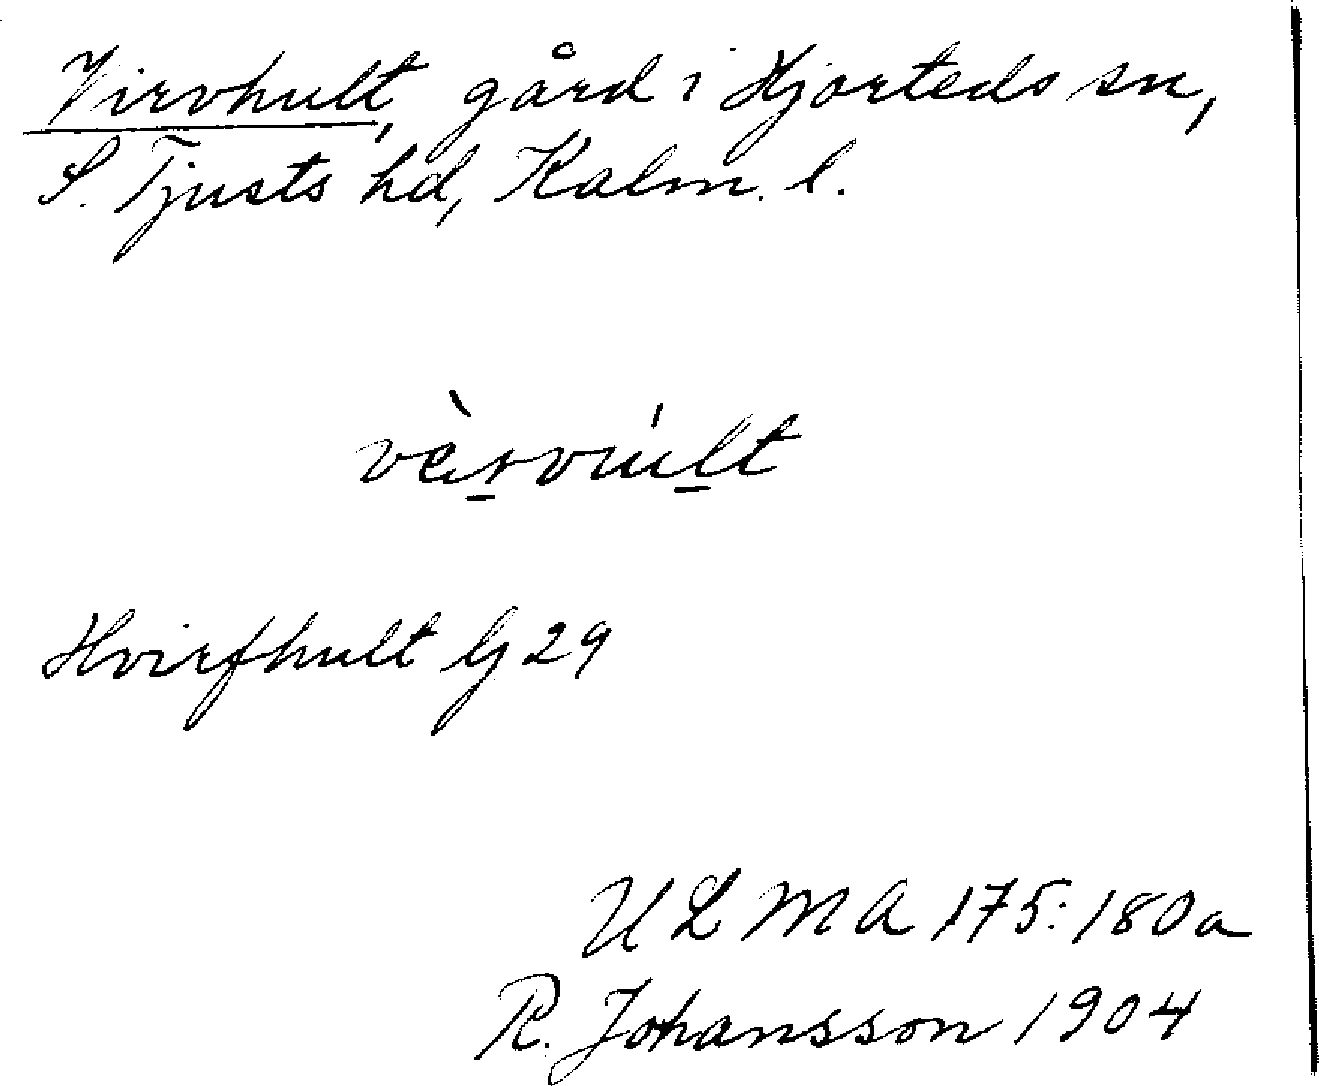 Virvhult, gård i Hjorteds sn,
S. Tjusts hd, Kalm. l.
vèrvúlt
Hvirfhult Gj 29
ULMA 175:180a
R. Johansson 1904